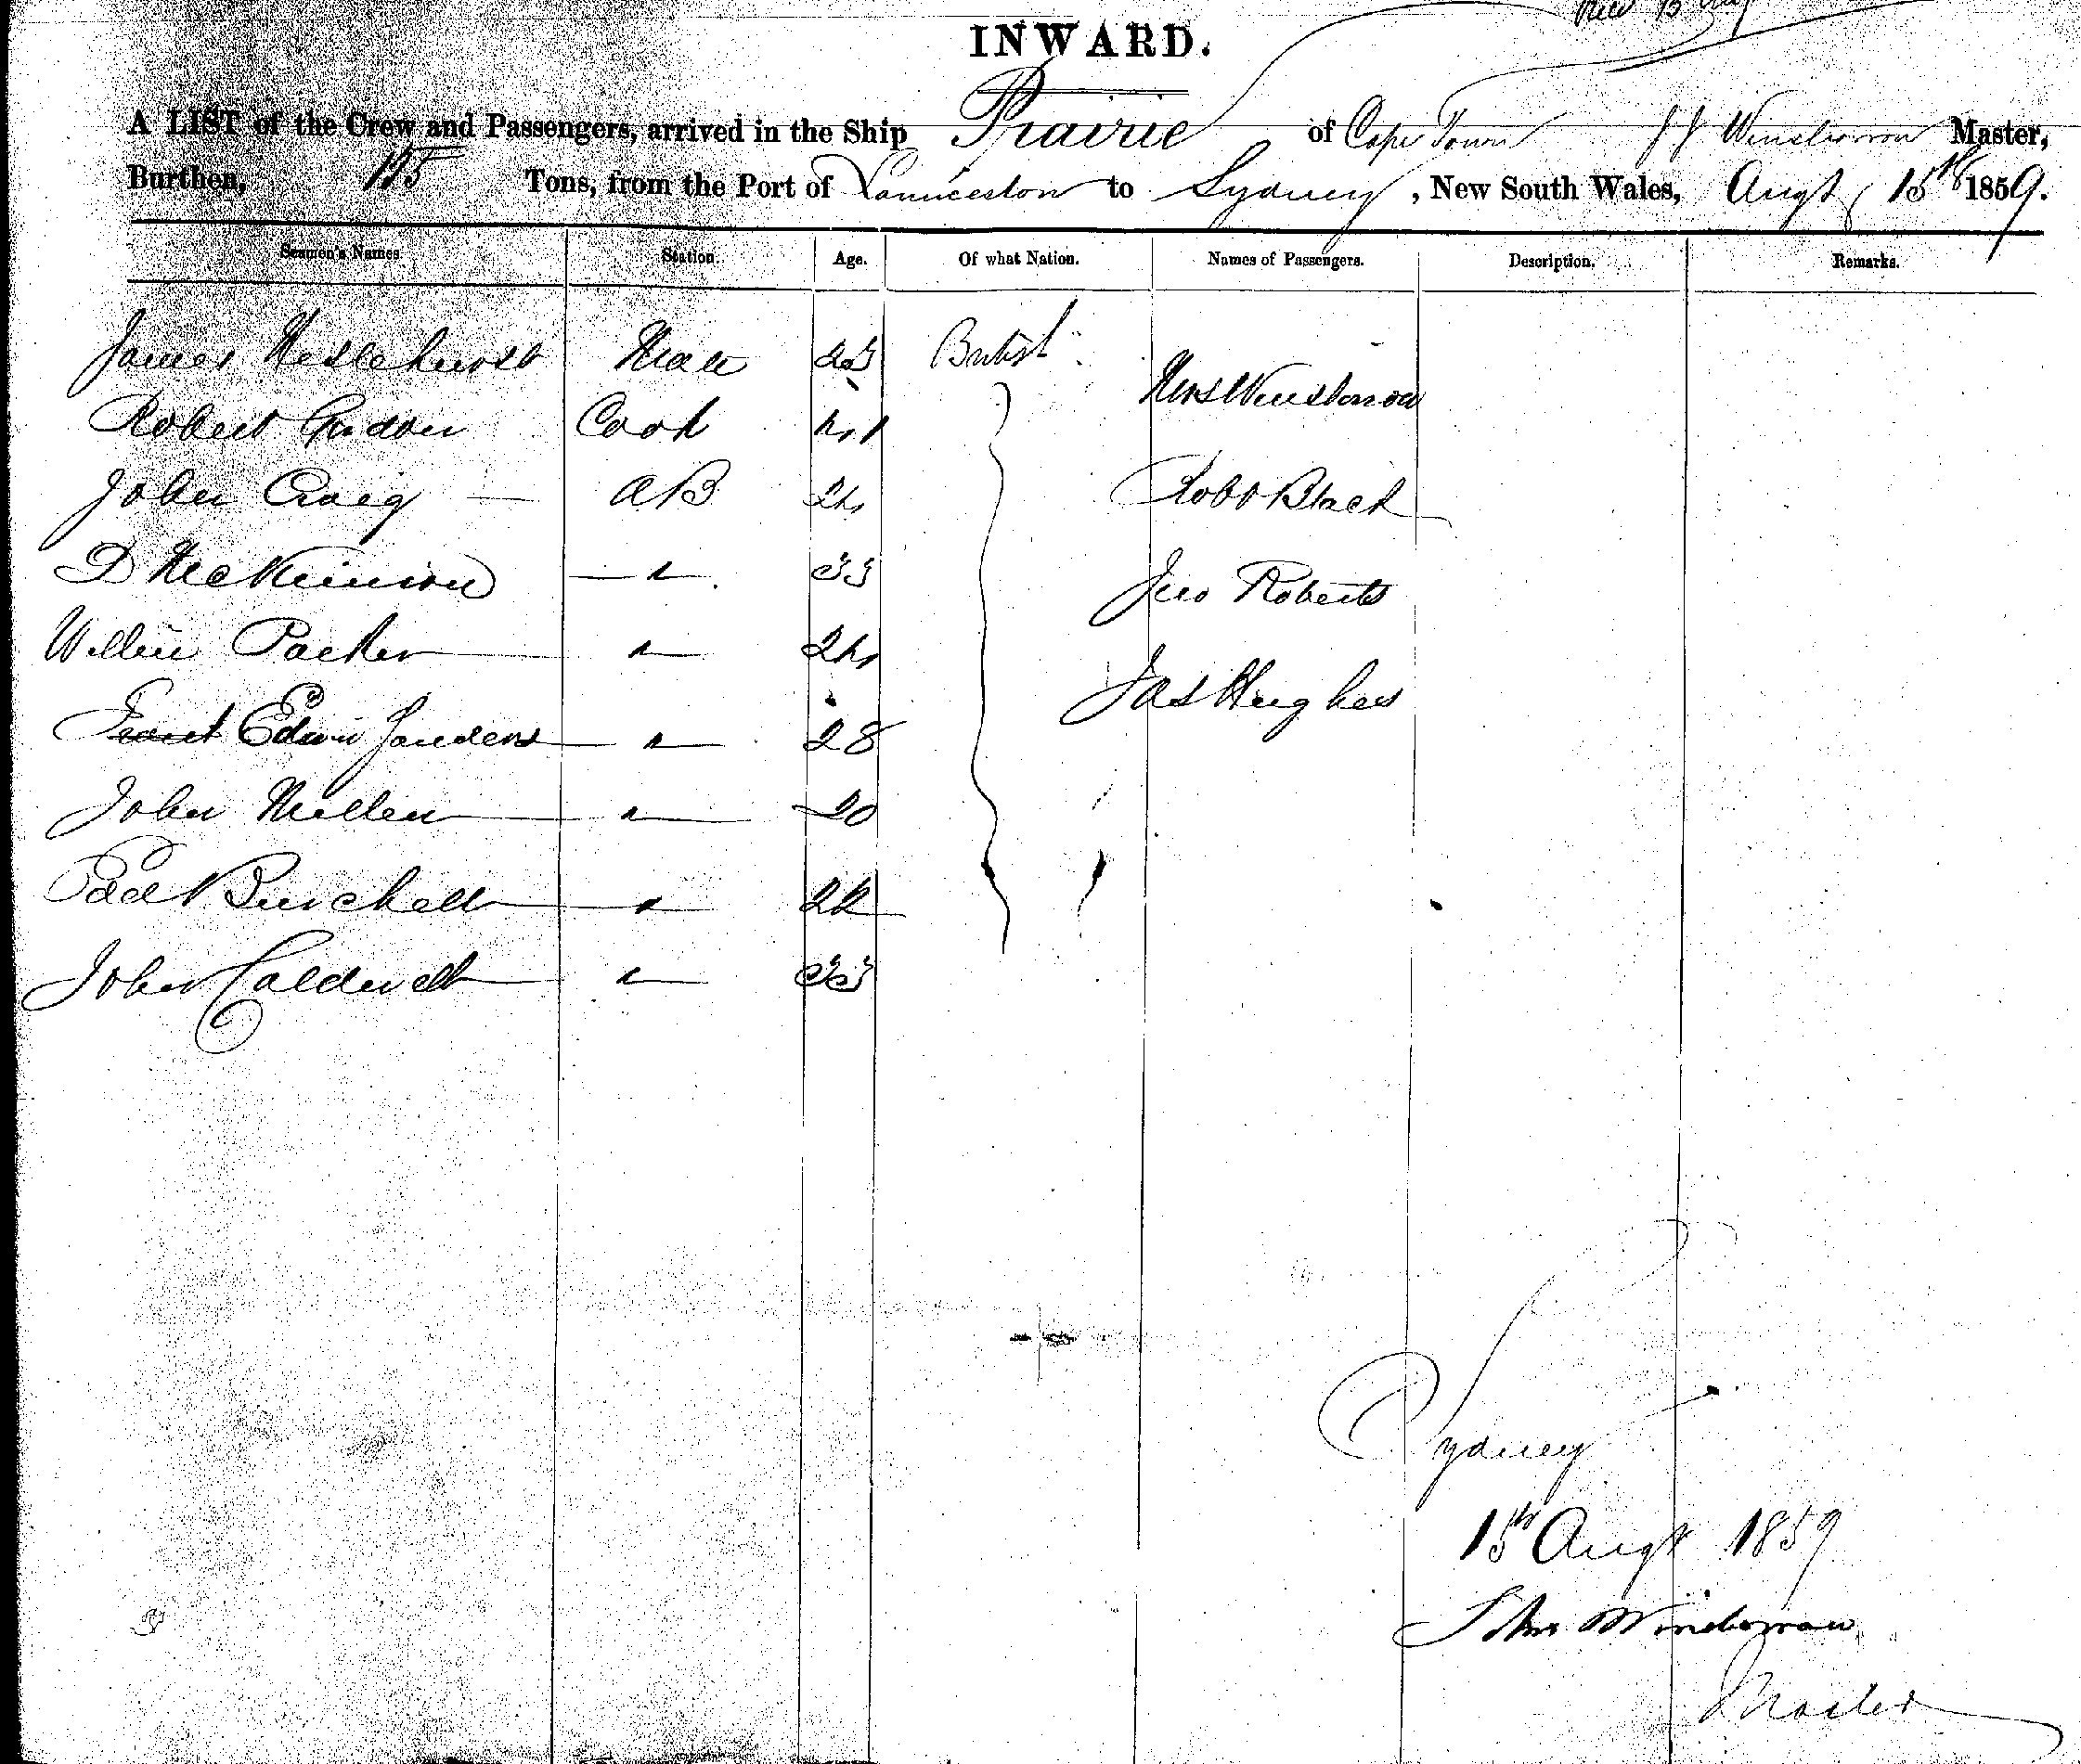 INWARD.
A LIST of the Crew and Passengers, arrived in the Ship Prairie of Cape Town J J Master,
Burthen, 175 Tons, from the Port of Launceston to Sydney, New South Wales, Augt 15th 1859.
Seamen's Names. Station. Age. Of what Nation. Names of Passengers. Description. Remarks.
James Heslehurst Mate British
Mrs
Robert Cook
John Craig AB 24 Robt Black
D McKinnon " 33
Jno Roberts
William Parker " 24
Jas Hughes
Edwin Sanders " 28
John " 20
Burchell " 22
John Caldwell " 33
Sydney
15th Augt 1859
John
Master